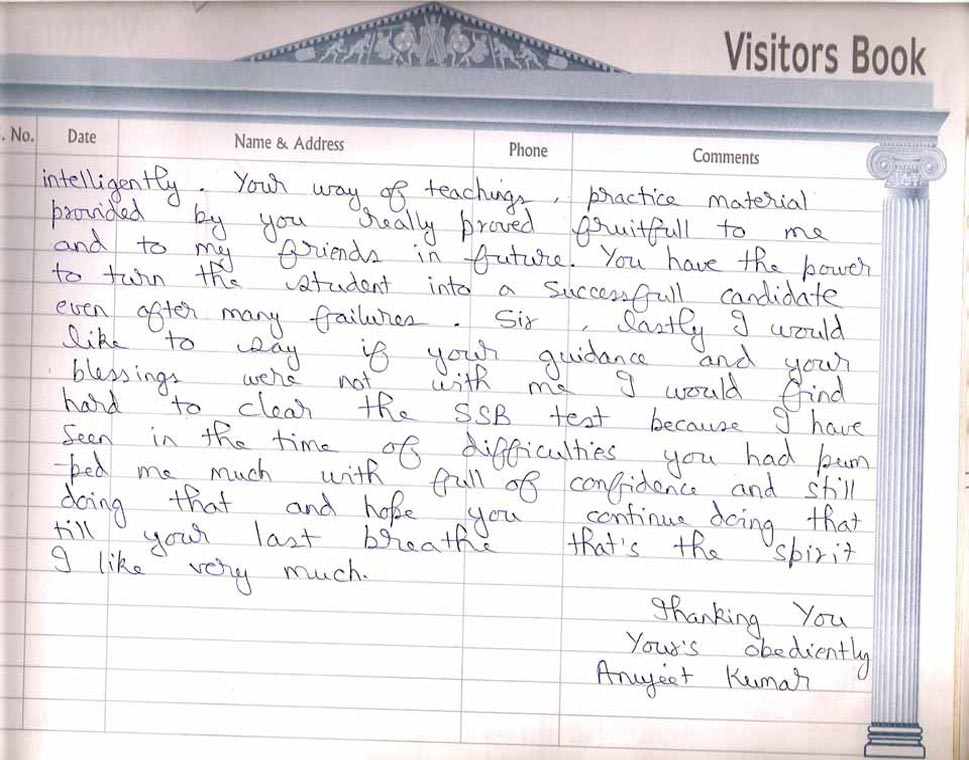 Visitors Book
. No. Date Name & Address Phone Comments
intelligently. Your way of teachings, practice material
provided by you really proved fruitfull to me
and to my friends in future. You have the power
to turn the student into a successfull candidate
even after many failures. Sir, lastly I would
like to say if your guidance and your
blessings were not with me I would find
hard to clear the SSB test because I have
seen in the time of difficulties you had pum
-ped me much with full of confidence and still
doing that and hope you continue doing that
till your last breathe that's the spirit
I like very much.
Thanking You
Your's obediently
Anujeet Kumar